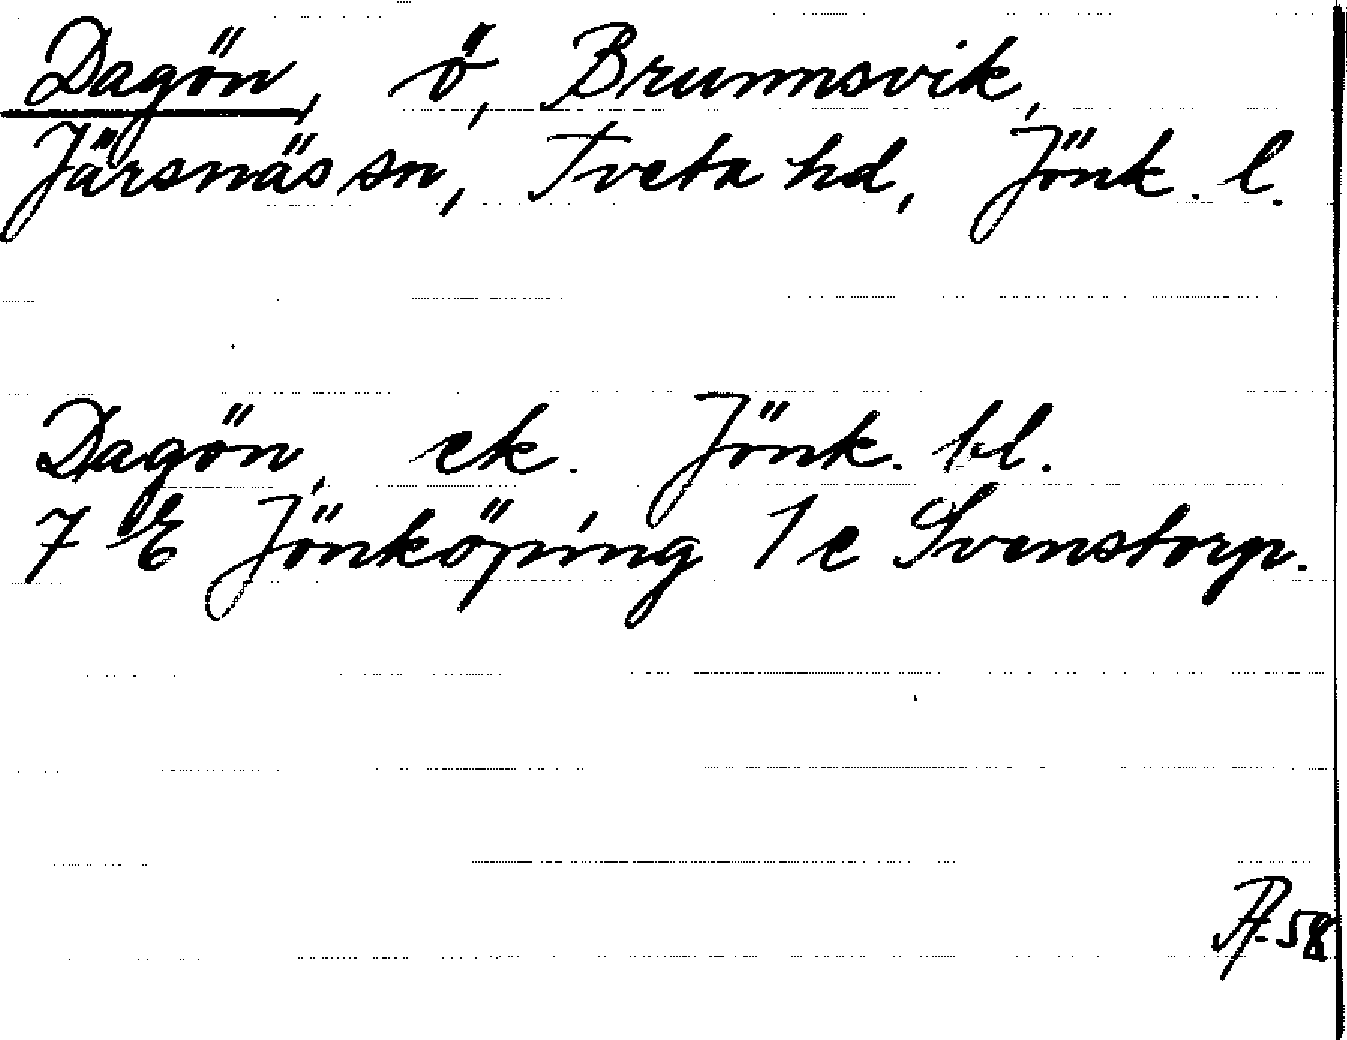 Dagön, ö, Brunnsvik,
Järsnäs sn, Tveta hd, Jönk. l.
Dagön, ek. Jönk. bl.
7 E Jönköping 1 e Svenstorp.
58